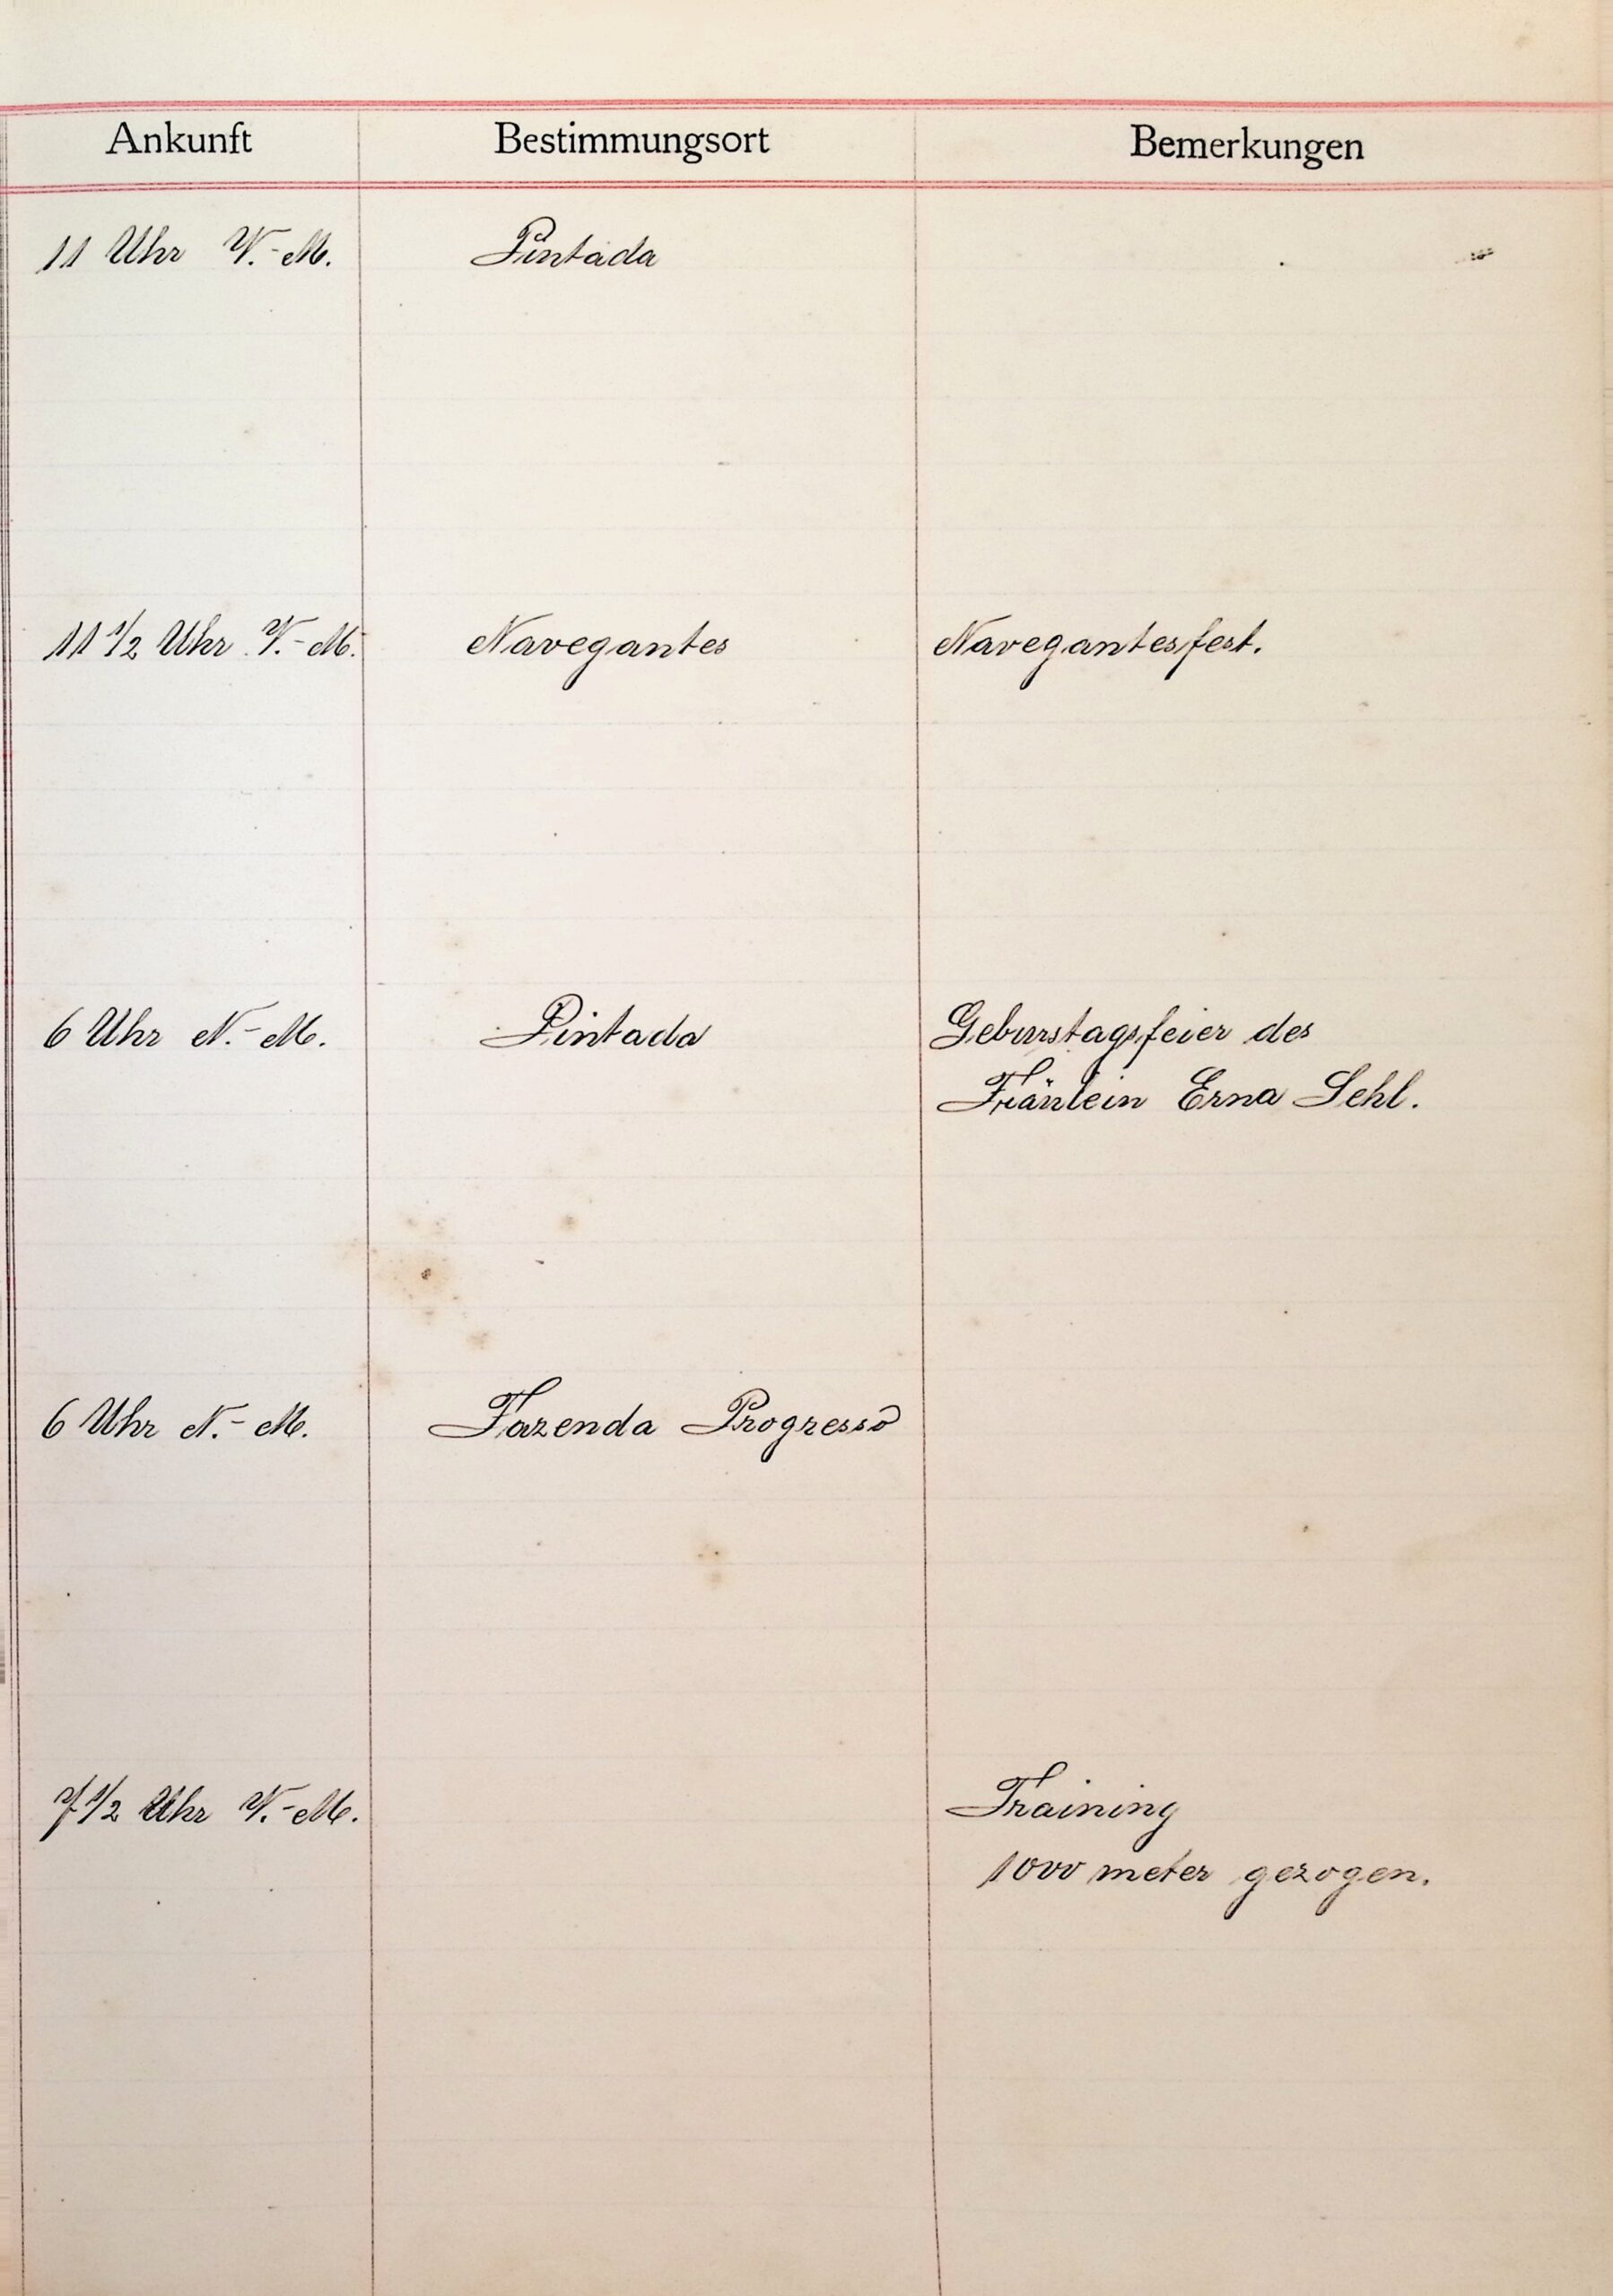 Ankunft Bestimmungsort Bemerkungen
11 Uhr V.-M. Pintada
11 1/2 Uhr V.-M. Navegantes Navegantesfest.
6 Uhr N.-M. Pintada Geburstagsfeier des
Fräulein Erna Sehl.
6 Uhr N.-M. Fazenda Progresso
7 1/2 Uhr V.-M. Training
1000 meter gezogen.